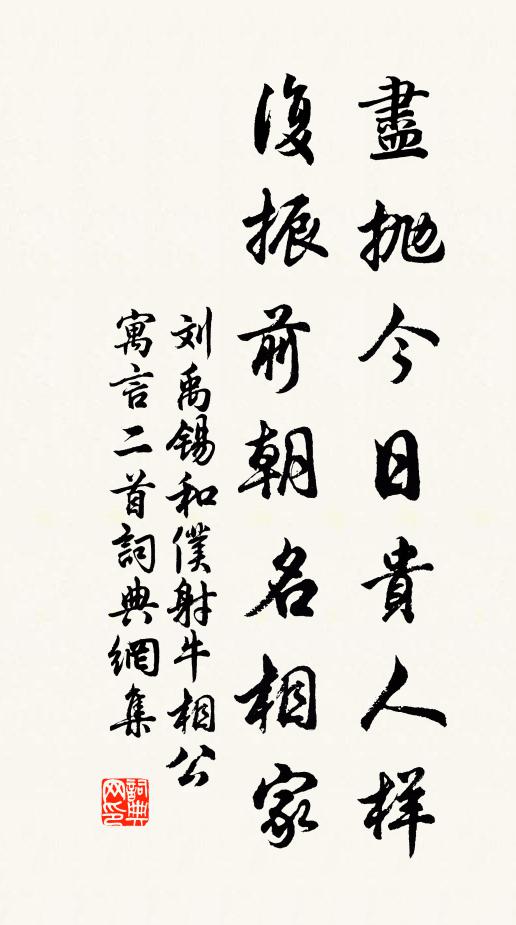 盡抛今日貴人样
復振前朝名相家
刘禹锡和僕射牛相公
寓言二首詞典網集
詞典
网印